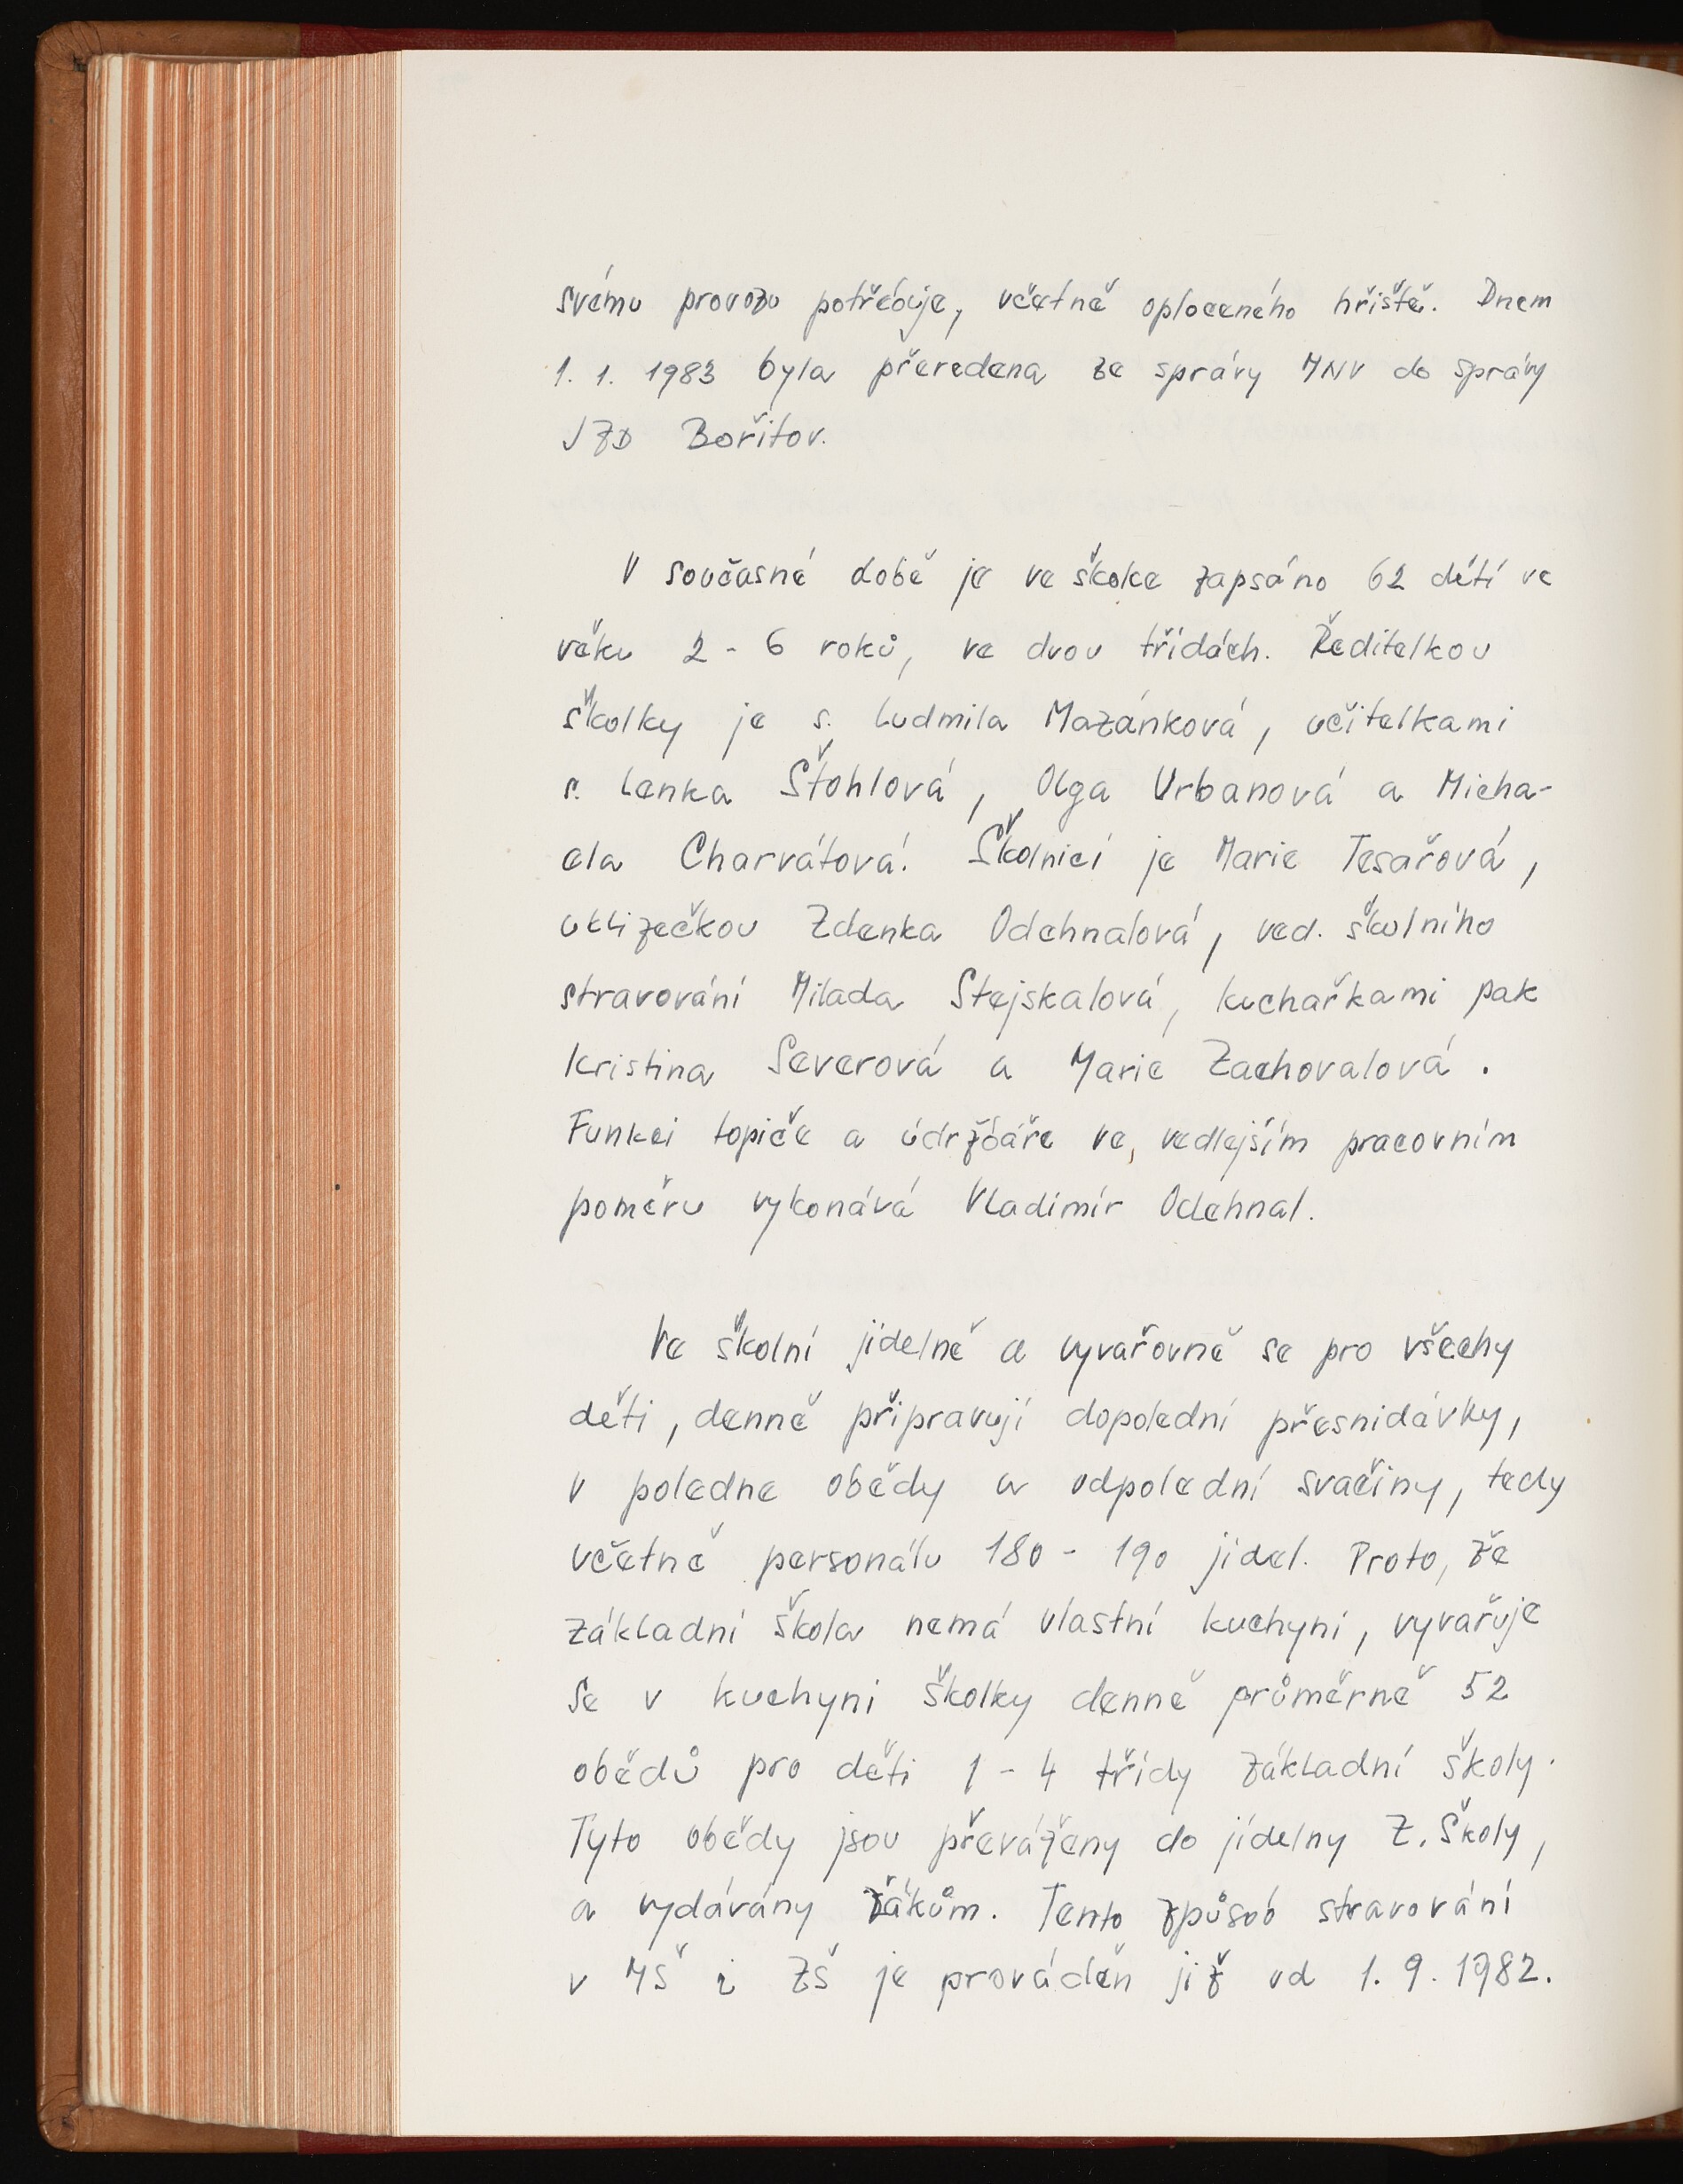 svému provozu potřebuje, včetně oploceného hřiště. Dnem
1. 1. 1983 byla převedena ze správy MNV do správy
JZD Bořitov.
V současné době je ve školce zapsáno 62 dětí ve
věku 2 - 6 roků, ve dvou třídách. Ředitelkou
školky je s. Ludmila Mazánková, učitelkami
s. Lenka Štohlová, Olga Urbanová a Micha-
ela Charvátová. Školnicí je Marie Tesařová,
uklizečkou Zdenka Odehnalová, ved. školního
stravování Milada Stejskalová, kuchařkami pak
Kristina Severová a Marie Zachovalová.
Funkci topiče a údržbáře ve vedlejším pracovním
poměru vykonává Vladimír Odehnal.
Ve školní jídelně a vyvařovně se pro všechy
děti, denně připravují dopolední přesnidávky,
v poledne obědy a odpolední svačiny, tedy
včetně personálu 180 - 190 jídel. Proto, že
základní škola nemá vlastní kuchyni, vyvařuje
se v kuchyni školky denně průměrně 52
obědů pro děti 1 - 4 třídy základní školy.
Tyto obědy jsou převáženy do jídelny Z. Školy,
a vydávány žákům. Tento způsob stravování
v MŠ i ZŠ je prováděn již od 1. 9. 1982.